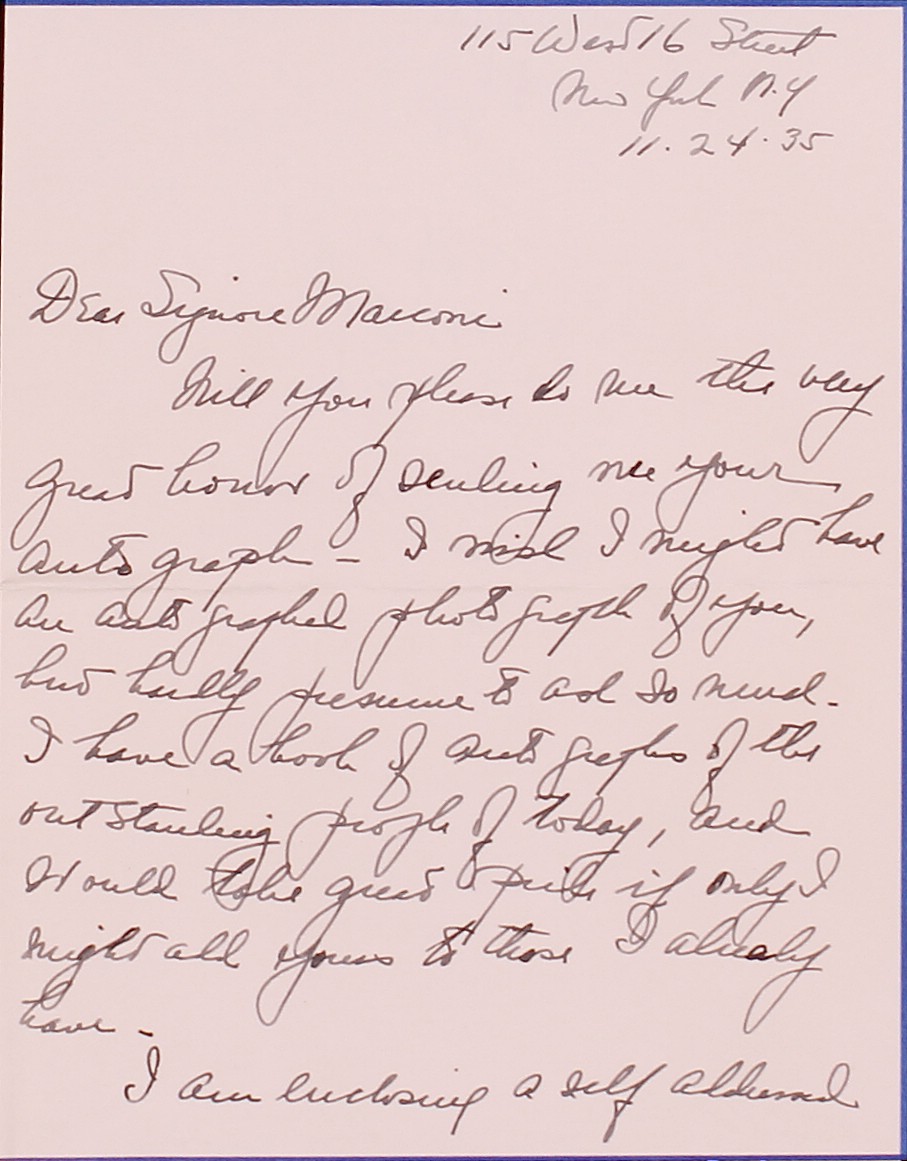 115 West 16 Street
New York N.Y
11.24.35
Dear Signore Marconi
Will you please do me the very
great honor of sending me your
autograph - I wish I might have
an autographed photograph of you,
but hardly presume to ask so much.
I have a book of autographs of the
outstanding people of today, and
would take great pride if only I
might add yours to those I already
have -
I am enclosing a self addressed